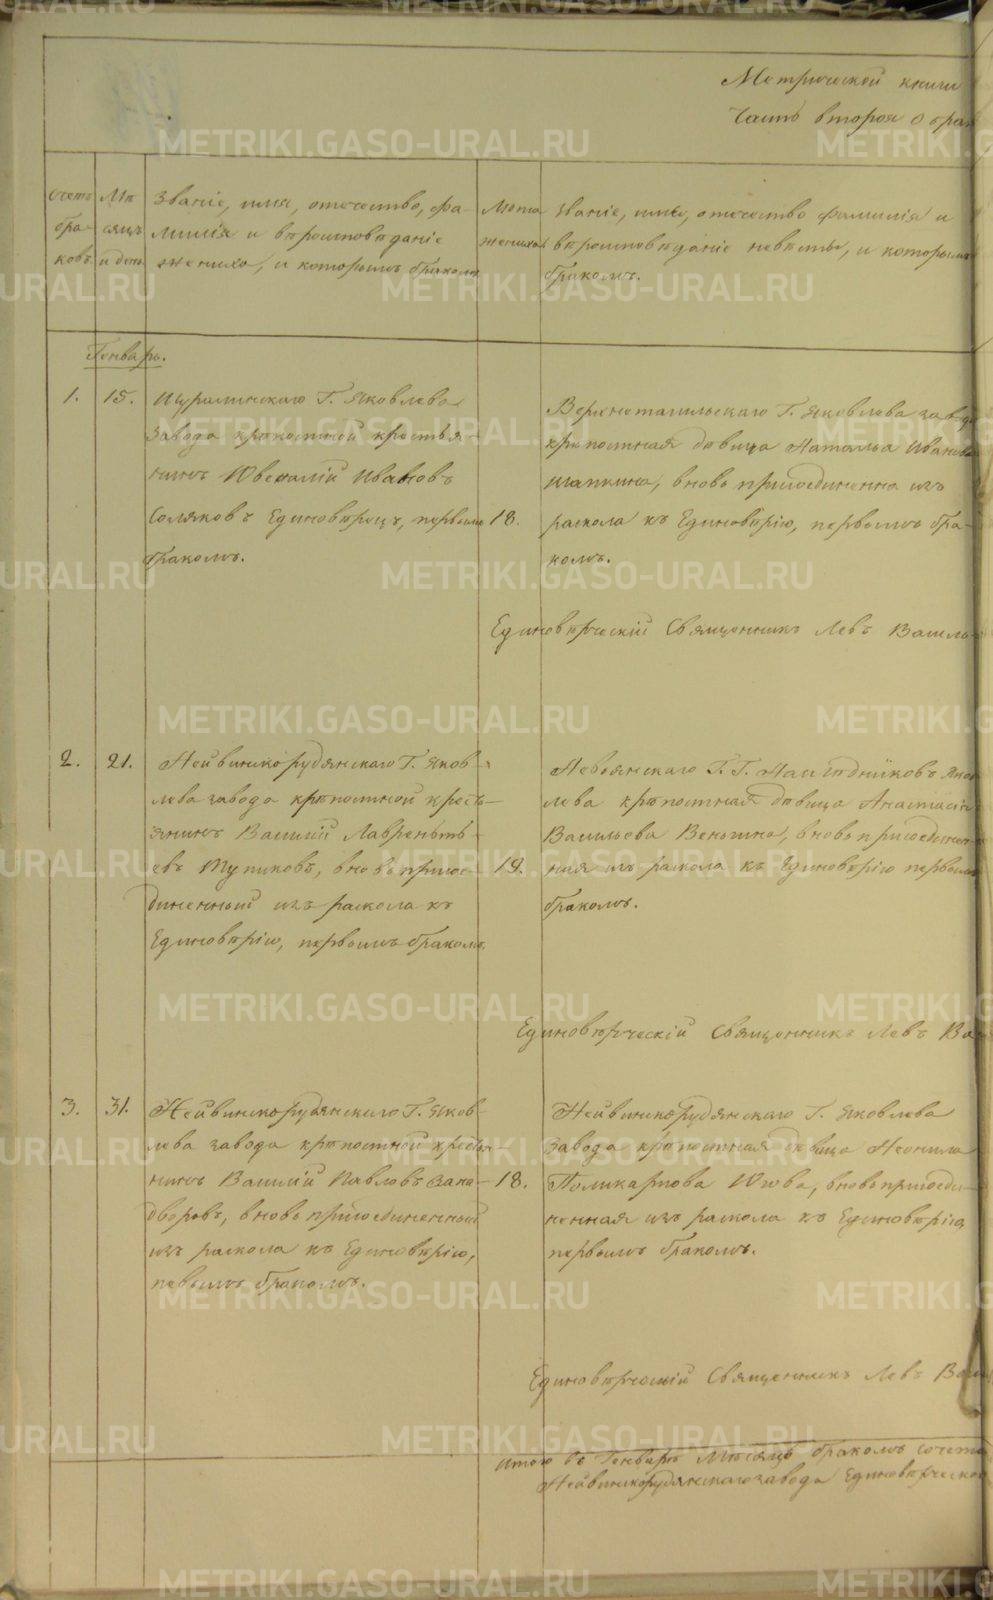 Метрической книги
Часть вторая о брак
Счетъ браковъ
Мѣсяцъ и день
Званіе, имя, отечество, фа-
милія и вѣроисповѣданіе
жениха, и которымъ бракомъ
Лѣта жениха
Званіе, имя, отечество фамилія и
вѣроисповѣданіе невѣсты, и которымъ
бракомъ.
Генварь.
1.
15.
Шуралинскаго Г. Яковлева
завода крѣпостной крестья-
нинъ Ювеналій Ивановъ
Соляковъ Единовѣрецъ, первымъ
бракомъ.
18.
Верхнетагильскаго Г. Яковлева завода
крѣпостная дѣвица Наталья Иванова
Шапкина, вновь присоединенна изъ
раскола къ Единовѣрію, первымъ бра-
комъ.
Единовѣрческій Священникъ Левъ Василь
2.
21.
Нейвинскорудянскаго Г. Яков-
лева завода крѣпостной кресть-
янинъ Василій Лавренть-
евъ Тупиковъ, вновь присое-
диненный изъ раскола къ
Единовѣрію, первымъ бракомъ.
19.
Невьянскаго Г. Г. Наслѣдниковъ Яков
лева крѣпостная дѣвица Анастасія
Васильева Веньгина, вновь присоединен-
ная изъ раскола къ Единовѣрію первымъ
бракомъ.
Единовѣрческій Священникъ Левъ Ва
3.
31.
Нейвинскорудянскаго Г. Яков-
лева завода крѣпостной кресть-
нинъ Василій Павловъ Зака-
дворовъ, вновь присоединенный
изъ раскола къ Единовѣрію,
певымъ бракомъ.
18.
Нейвинскорудянскаго Г. Яковлева
завода крѣпостная дѣвица Неонила
Поликарпова Июва, вновь присоеди-
ненная изъ раскола къ Единовѣрію,
первымъ бракомъ.
Единовѣрческій Священникъ Левъ Васи
Итого въ Генварѣ Мѣсяцѣ бракомъ сочета
Нейвинскорудянскаго завода Единовѣрческой
METRIKI.GASO-URAL.RU